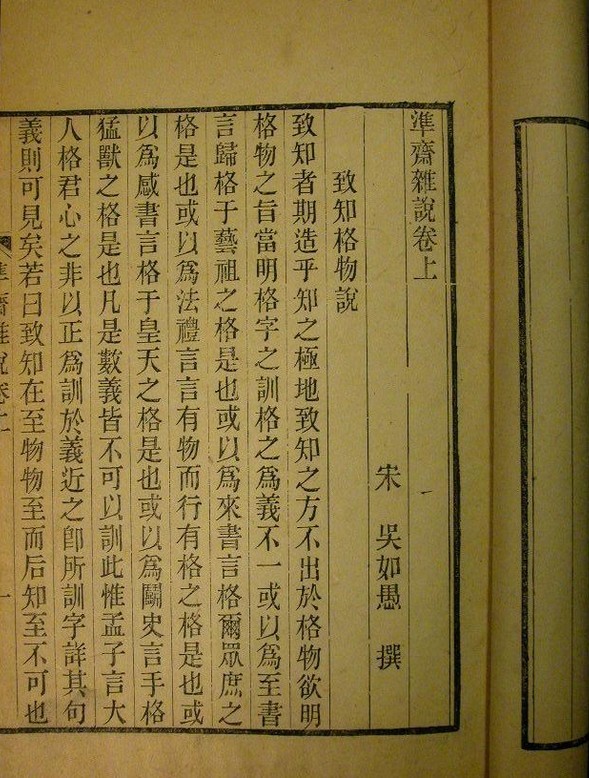 準齋雜說卷上
宋 吳如愚 撰
致知格物說
致知者期造乎知之極地致知之方不出於格物欲明
格物之旨當明格字之訓格之爲義不一或以爲至書
言歸格于藝祖之格是也或以爲來書言格爾眾庶之
格是也或以爲法禮言言有物而行有格之格是也或
以爲感書言格于皇天之格是也或以爲鬭史言手格
猛獸之格是也凡是數義皆不可以訓此惟孟子言大
人格君心之非以正爲訓於義近之卽所訓字詳其句
義則可見矣若曰致知在至物物至而后知至不可也
準齋雜說卷上
一